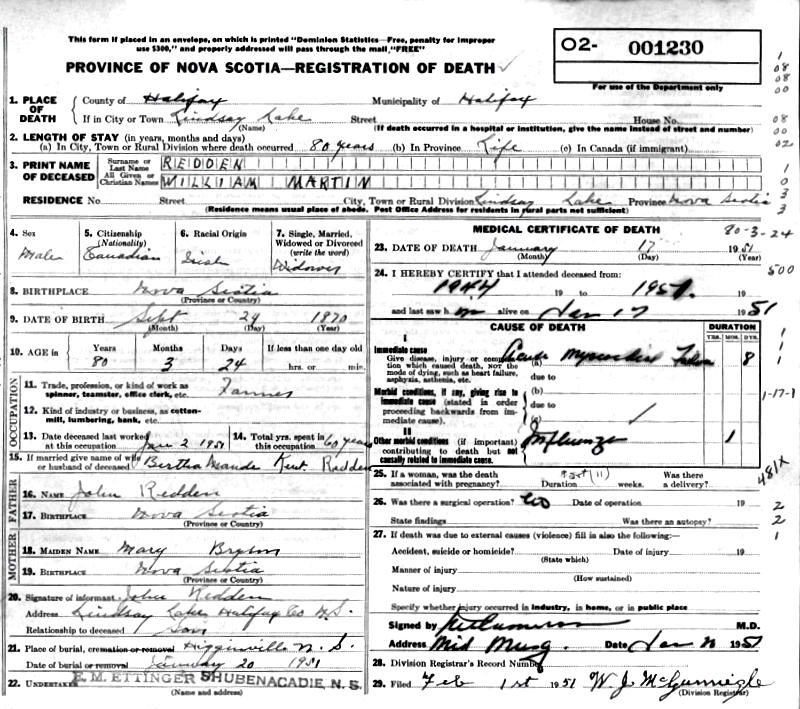 This form if placed in an envelope, on which is printed "Dominion Statistics—Free, penalty for improper
use $300," and properly addressed will pass through the mail, "FREE"
O2- 001230
PROVINCE OF NOVA SCOTIA—REGISTRATION OF DEATH
For use of the Department only
1. PLACE OF DEATH County of Halifax Municipality of Halifax
If in City or Town Lindsay Lake Street House No.
(Name) (If death occurred in a hospital or institution, give the name instead of street and number)
2. LENGTH OF STAY (in years, months and days)
(a) In City, Town or Rural Division where death occurred 80 years (b) In Province Life (c) In Canada (if immigrant)
3. PRINT NAME OF DECEASED Surname or Last Name REDDEN
All Given or Christian Names WILLIAM MARTIN
RESIDENCE No. Street City, Town or Rural Division Lindsay Lake Province Nova Scotia
(Residence means usual place of abode. Post Office Address for residents in rural parts not sufficient)
4. Sex Male
5. Citizenship (Nationality) Canadian
6. Racial Origin Irish
7. Single, Married, Widowed or Divorced (write the word) Widower
8. BIRTHPLACE Nova Scotia
(Province or Country)
9. DATE OF BIRTH Sept 24 1870
(Month) (Day) (Year)
10. AGE in Years Months Days If less than one day old
80 3 24 hrs. or min.
OCCUPATION
11. Trade, profession, or kind of work as spinner, teamster, office clerk, etc. Farmer
12. Kind of industry or business, as cotton-mill, lumbering, bank, etc.
13. Date deceased last worked at this occupation Jan 2 1951
14. Total yrs. spent in this occupation 60 years
15. If married give name of wife or husband of deceased Bertha Maude Kent Redden
FATHER
16. NAME John Redden
17. BIRTHPLACE Nova Scotia
(Province or Country)
MOTHER
18. MAIDEN NAME Mary Bryson
19. BIRTHPLACE Nova Scotia
(Province or Country)
20. Signature of informant John Redden
Address Lindsay Lake Halifax Co N.S.
Relationship to deceased Son
21. Place of burial, cremation or removal Higginsville N.S.
Date of burial or removal January 20 1951
22. UNDERTAKER E. M. ETTINGER SHUBENACADIE, N. S.
(Name and address)
MEDICAL CERTIFICATE OF DEATH 80-3-24
23. DATE OF DEATH January 17 1951
(Month) (Day) (Year)
24. I HEREBY CERTIFY that I attended deceased from:
1944 19 to 1951. 19
and last saw h m alive on Jan 17 1951
CAUSE OF DEATH DURATION
YRS. MOS. DYS.
I
Immediate cause
Give disease, injury or complication which caused death, NOT the mode of dying, such as heart failure, asphyxia, asthenia, etc.
(a) Acute Myocardial Failure 8
due to
Morbid conditions, if any, giving rise to immediate cause (stated in order proceeding backwards from immediate cause).
(b)
due to
(c)
II
Other morbid conditions (if important) contributing to death but not causally related to immediate cause.
Influenza 1
25. If a woman, was the death associated with pregnancy? Duration weeks. Was there a delivery?
26. Was there a surgical operation? No Date of operation 19
State findings Was there an autopsy?
27. If death was due to external causes (violence) fill in also the following:—
Accident, suicide or homicide? Date of injury 19
(State which)
Manner of injury
(How sustained)
Nature of injury
Specify whether injury occurred in industry, in home, or in public place
Signed by M.D.
Address Mid Musq Date Jan 1951
28. Division Registrar's Record Number
29. Filed Feb 1st 1951 W. J. McGunnigle
(Division Registrar)
1
08
08
00
08
00
02
1
0
3
3
500
1
1
1
1-17-1
481X
2
2
1